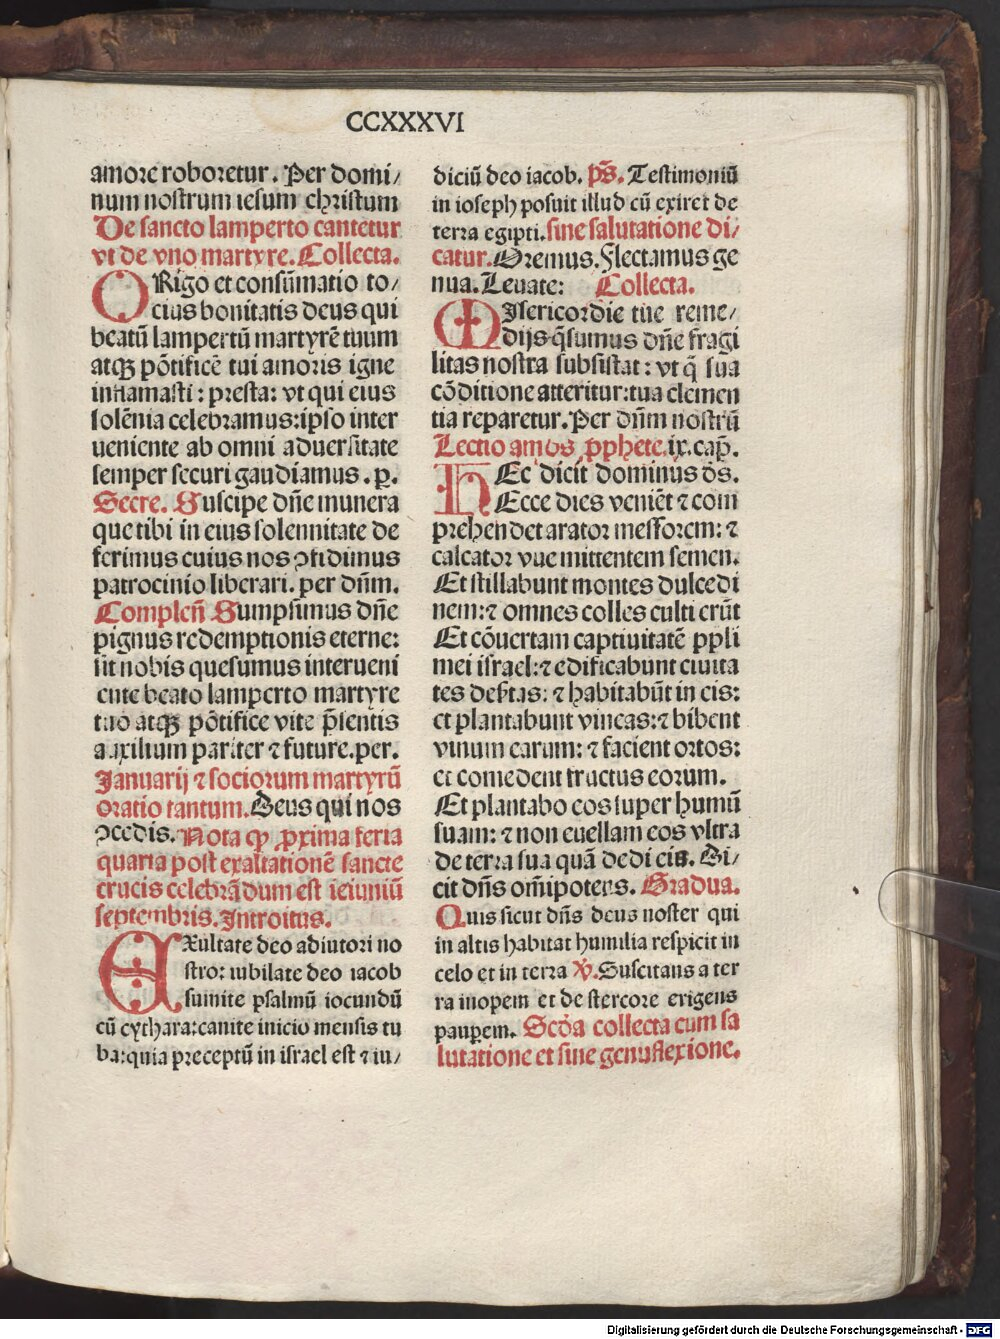 CCXXXVI
amore roboretur. Per domi/
num nostrum iesum christum
De sancto lamperto cantetur
vt de vno martyre. Collecta.
ORigo et consũmatio to/
cius bonitatis deus qui
beatũ lampertũ martyrẽ tuum
atqꝫ põtificẽ tui amoris igne
inflamasti: presta: vt qui eius
solẽnia celebramus: ipso inter
ueniente ab omni aduersitate
semper securi gaudiamus. ꝑ.
Secre. Suscipe dñe munera
que tibi in eius solennitate de
ferimus cuius nos ꝯfidimus
patrocinio liberari. per dñm.
Complẽñ Sumpsimus dñe
pignus redemptionis eterne:
sit nobis quesumus interueni
ente beato lamperto martyre
tuo atqꝫ põtifice vite p̃sentis
auxilium pariter ⁊ future. per.
Januarij ⁊ sociorum martyrũ
oratio tantum. Deus qui nos
ꝯcedis. Nota ꝙ ꝓxima feria
quarta post exaltationẽ sancte
crucis celebrãdum est ieiuniũ
septembris. Introitus.
EXultate deo adiutori no
stro: iubilate deo iacob
sumite psalmũ iocundũ
cũ cythara: canite inicio mensis tu
ba: quia preceptũ in israel est ⁊ iu/
diciũ deo iacob. p̃s. Testimoniũ
in ioseph posuit illud cũ exiret de
terra egipti. sine salutatione di/
catur. Oremus. Flectamus ge
nua. Leuate: Collecta.
MIsericordie tue reme/
dijs q̃sumus dñe fragi
litas nostra subsistat: vt q̃ sua
cõditione atteritur: tua clemen
tia reparetur. Per dñm nostrũ
Lectio amos ꝓphete. ix. cap̃.
HEc dicit dominus d̃s.
Ecce dies veniẽt ⁊ com
prehendet arator messorem: ⁊
calcator vue mittentem semen.
Et stillabunt montes dulcedi
nem: ⁊ omnes colles culti erũt
Et cõuertam captiuitatẽ ppli
mei israel: ⁊ edificabunt ciuita
tes des̃tas: ⁊ habitabũt in eis:
et plantabunt vineas: ⁊ bibent
vinum earum: ⁊ facient ortos:
et comedent fructus eorum.
Et plantabo eos super humũ
suam: ⁊ non euellam eos vltra
de terra sua quã dedi eis. Di/
cit dñs om̃ipotens. Gradua.
Quis sicut dñs deus noster qui
in altis habitat humilia respicit in
celo et in terra ℣. Suscitans a ter
ra inopem et de stercore erigens
pauꝑem. Scd̃a collecta cum sa
lutatione et sine genuflexione.
Digitalisierung gefördert durch die Deutsche Forschungsgemeinschaft - DFG